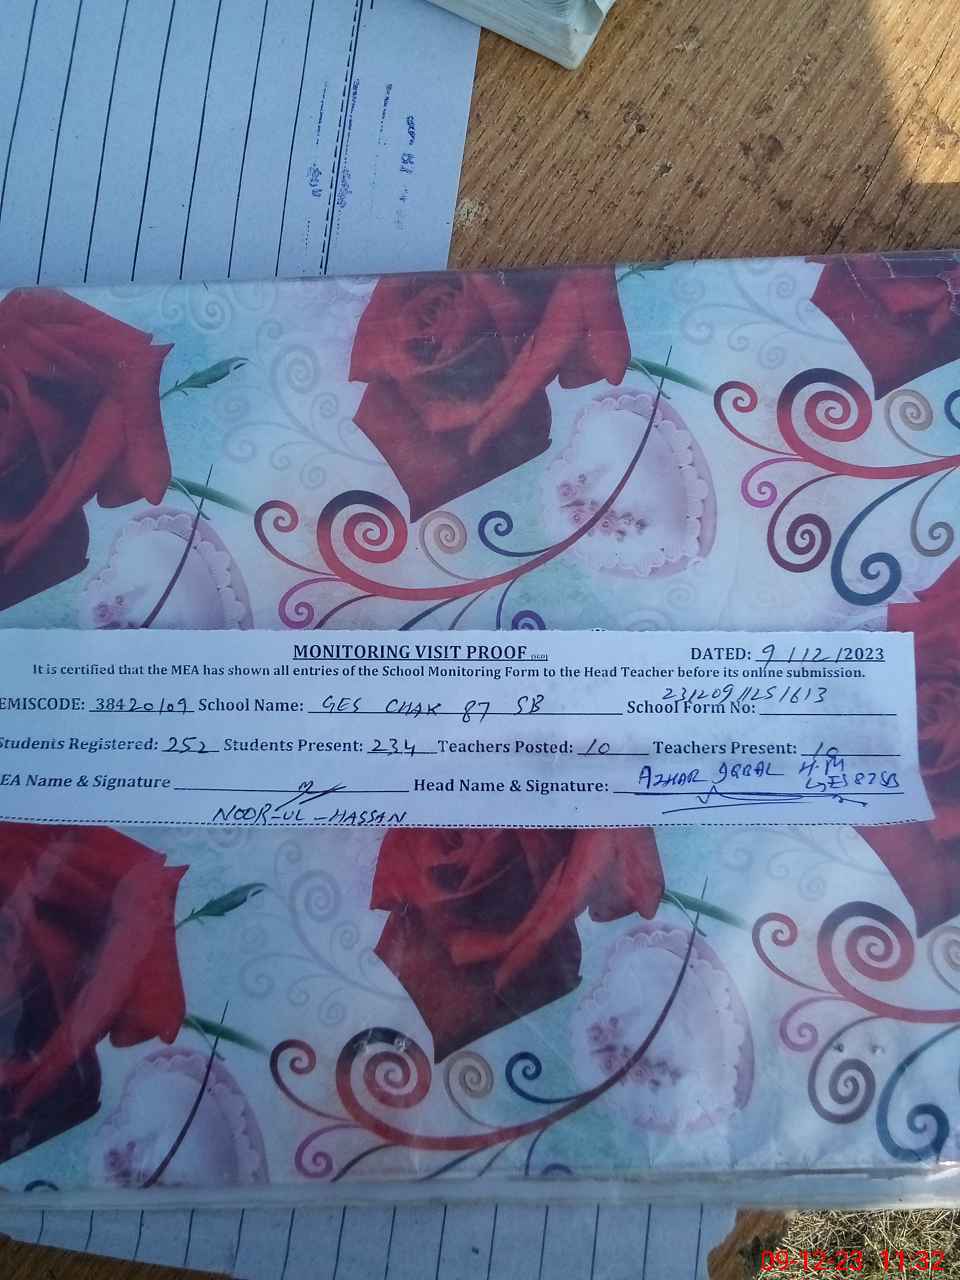 MONITORING VISIT PROOF
DATED: 9/12/2023
It is certified that the MEA has shown all entries of the School Monitoring Form to the Head Teacher before its online submission.
EMISCODE: 38420109 School Name: GES CHAK 87 SB School Form No: 23120911251613
Students Registered: 252 Students Present: 234 Teachers Posted: 10 Teachers Present: 10
EA Name & Signature Head Name & Signature: AZHAR IQBAL H.M
GES 87SB
NOOR-UL-HASSAN
09-12-23 11:32